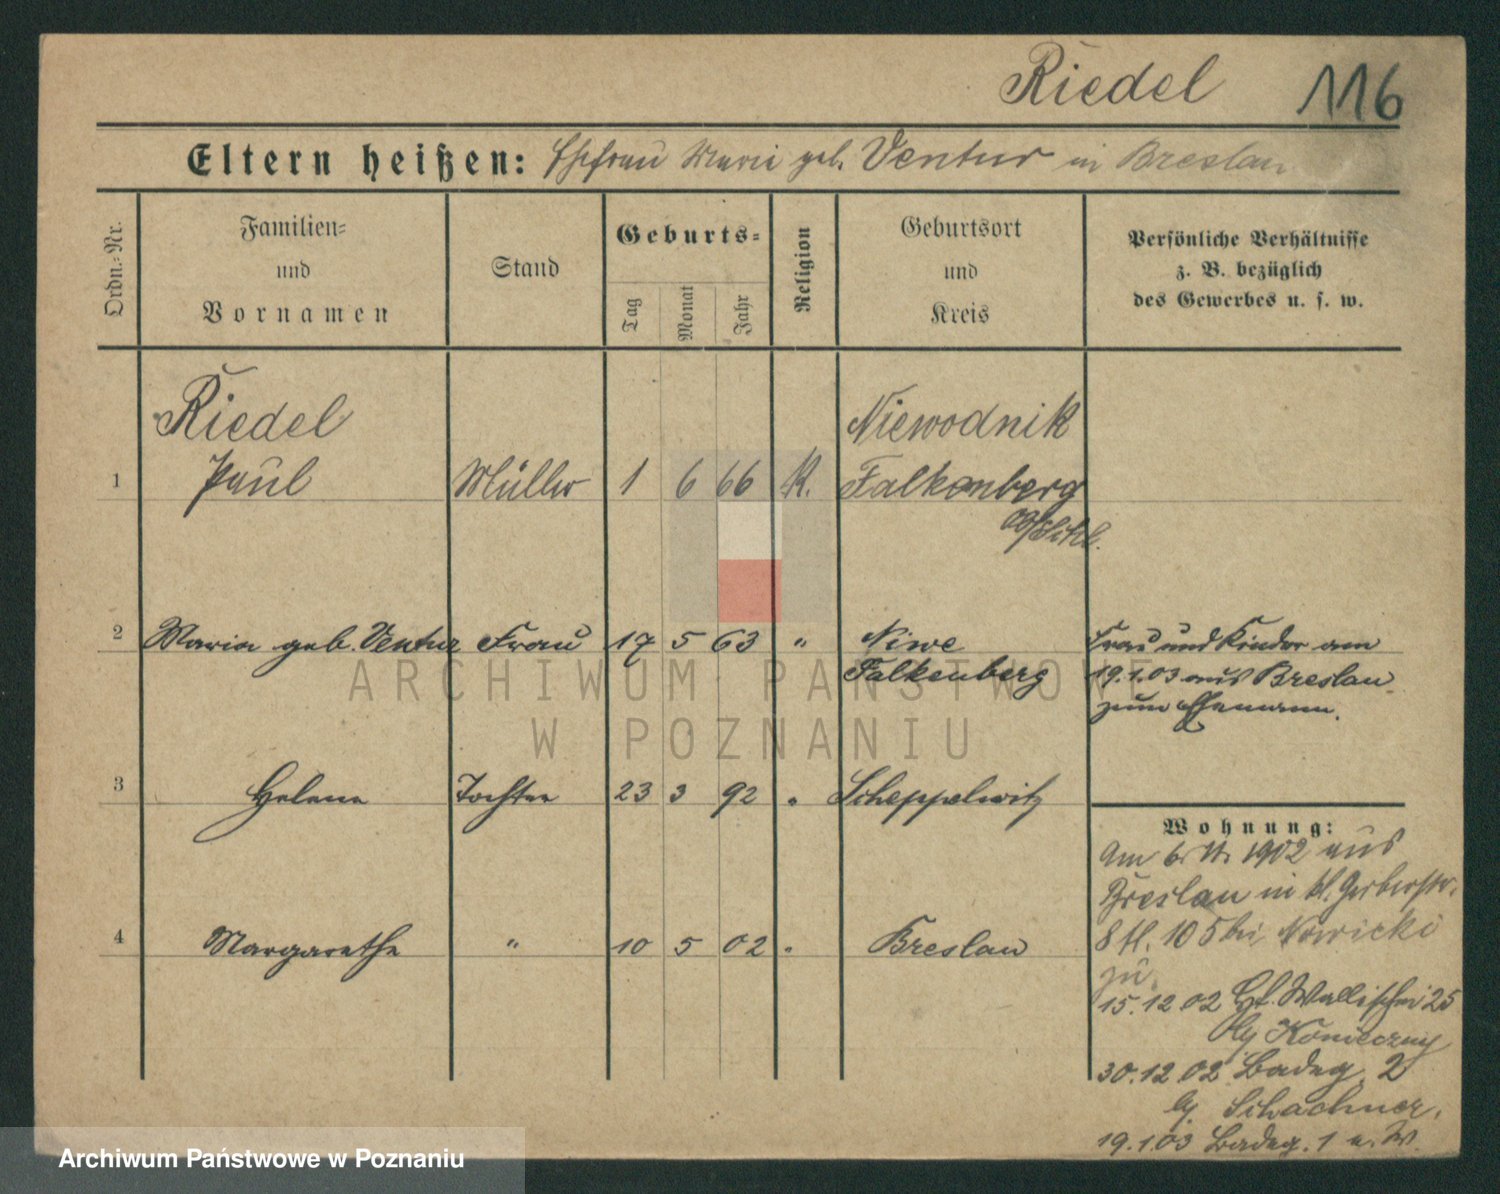 Riedel 116
Eltern heißen: Ehefrau Marie geb. Ventur in Breslau
Ordn.-Nr.
Familien-
und
Vornamen
Stand
Geburts-
Tag
Monat
Jahr
Religion
Geburtsort
und
Kreis
Persönliche Verhältnisse
z. B. bezüglich
des Gewerbes u. s. w.
Riedel Niewodnik
1 Paul Müller 1 6 66 K. Falkenberg
2 Maria geb. Ventur Frau 17 5 63 " Niwe
Falkenberg
Frau und Kinder am
19.1.03 aus Breslau
zum Ehemann.
3 Helene Tochter 23 3 92 " Scheppelwitz
4 Margarethe " 10 5 02 " Breslau
Wohnung:
Am 6. 11. 1902 aus
Breslau in kl. Gerberstr.
8 II. 105 bei Nowicki
zu.
15.12.02 Wallischei 25
bei Konieczny
30.12.02 Badeg. 2
bei Schachner.
19.1.03 Badeg. 1 a. W.
ARCHIWUM PAŃSTWOWE
W POZNANIU
Archiwum Państwowe w Poznaniu